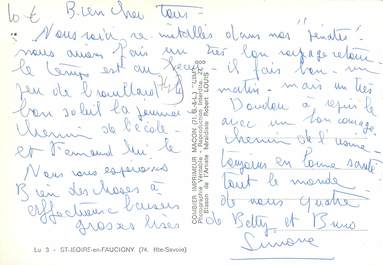 10 €
Bien cher tous -
Nous voici ré-installés dans nos "pénates"
nous avions fais un très bon voyage retour
le temps est au sec - il fais bon - un
peu de brouillard le matin - mais un très
bon soleil la journée Doudou à repris le
chemin de l'école - avec un bon courage
et Fernand lui le chemin de l'usine
Nous vous espérons toujours en bonne santé
Bien des choses à tout le monde
affectueux baisers de nous quatre
grosses bises de Betty et Bruno
Simone
COMBIER IMPRIMEUR MACON (S.-&-L.) "CIM"
Photographie Véritable - Reproduction Interdite
Blason de l'Artiste héraldiste Robert LOUIS
Lu 3 - ST-JEOIRE-en-FAUCIGNY (74. Hte-Savoie)